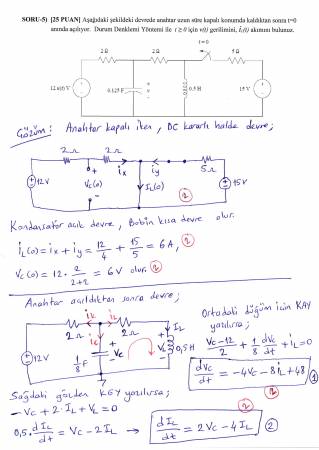 SORU-5) [25 PUAN] Aşağıdaki şekildeki devrede anahtar uzun süre kapalı konumda kaldıktan sonra t=0
anında açılıyor. Durum Denklemi Yöntemi ile t ≥ 0 için v(t) gerilimini, iL(t) akımını bulunuz.
t=0
2Ω 2Ω 5Ω
12 u(t) V 0.125 F 0.5 H 15 V
Çözüm: Anahtar kapalı iken, DC kararlı halde devre;
2Ω 2Ω ix iy 5Ω
12V Vc(0) IL(0) 15V
Kondansatör açık devre, Bobin kısa devre olur.
iL(0) = ix + iy = 12/4 + 15/5 = 6A,
Vc(0) = 12 · 2/(2+2) = 6V olur.
Anahtar açıldıktan sonra devre;
Ortadaki düğüm için KAY
yazılırsa;
2Ω 2Ω IL
12V 1/8 F Vc VL 0,5H
(Vc-12)/2 + 1/8 dVc/dt + iL = 0
dVc/dt = -4Vc - 8iL + 48 (1)
Sağdaki gözden KGY yazılırsa;
-Vc + 2·IL + VL = 0
0,5·dIL/dt = Vc - 2IL → dIL/dt = 2Vc - 4IL (2)